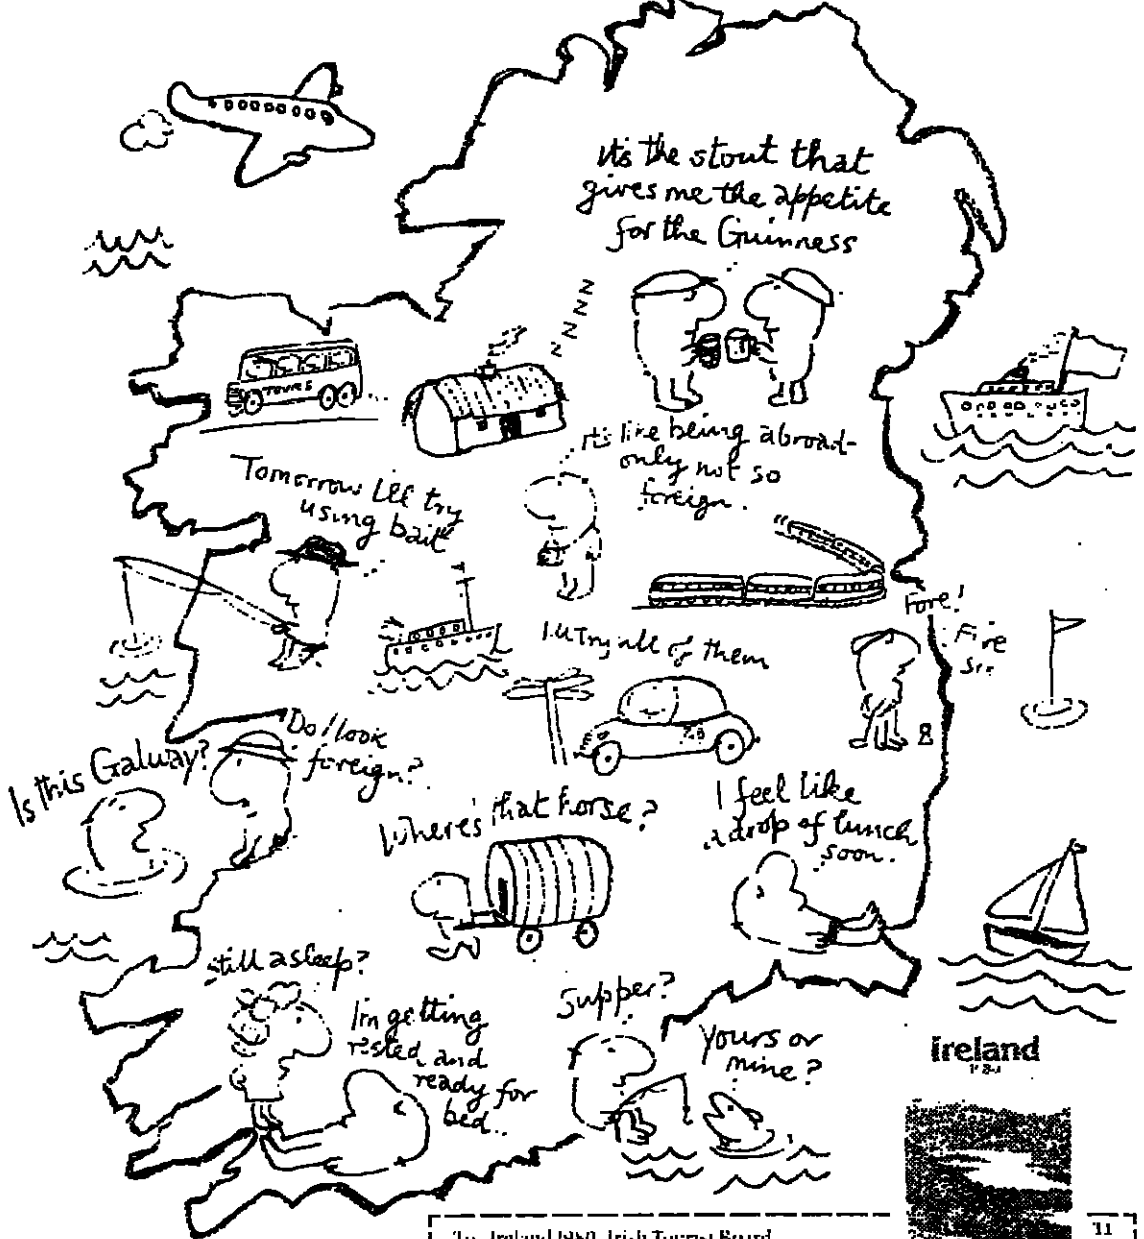 It's the stout that
gives me the appetite
for the Guinness
Z Z Z Z
TOURS
It's like being abroad-
only not so
foreign.
Tomorrow I'll try
using bait
Fore!
Five
Sir
I'll try all of them
Do I look
foreign?
Is this Galway?
Where's that horse?
I feel like
a drop of lunch
soon.
still asleep?
I'm getting
rested and
ready for
bed..
Supper?
yours or
mine?
ireland
To: Ireland 1980, Irish Tourist Board
11